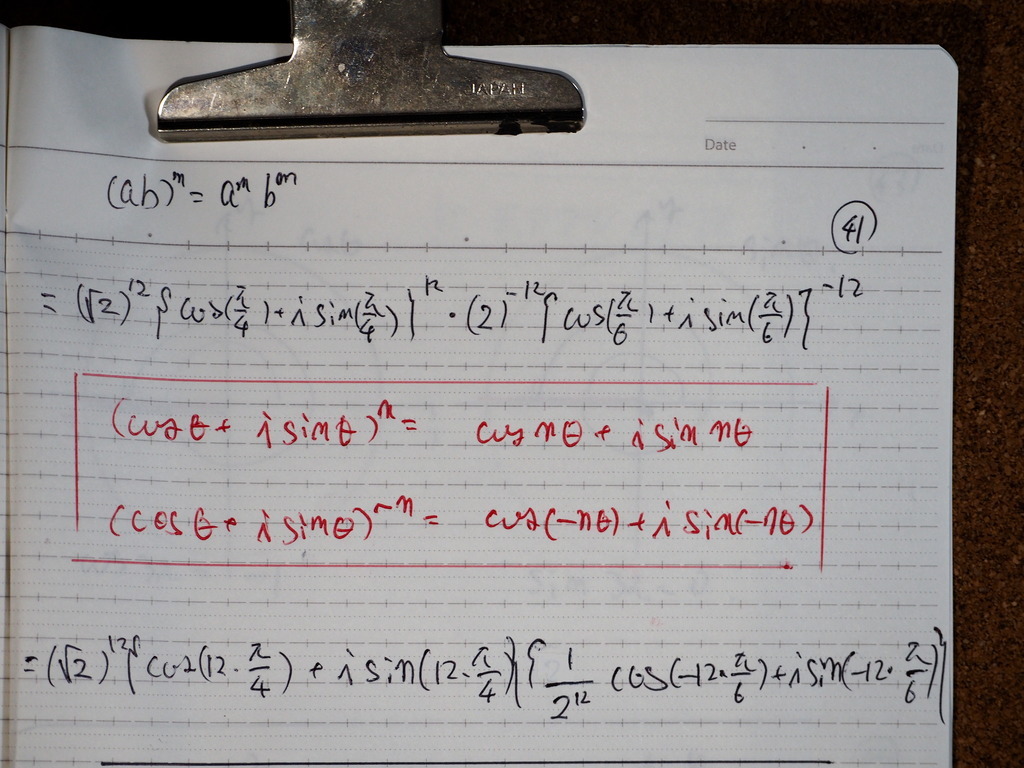 JAPAN
Date
(ab)ⁿ = aⁿ bⁿ
㊶
= (√2)¹² {cos(π/4) + i sin(π/4)}¹² · (2)⁻¹² {cos(π/6) + i sin(π/6)}⁻¹²
(cosθ + i sinθ)ⁿ = cos nθ + i sin nθ
(cosθ + i sinθ)⁻ⁿ = cos(-nθ) + i sin(-nθ)
= (√2)¹² {cos(12·π/4) + i sin(12·π/4)} {1/2¹² cos(-12·π/6) + i sin(-12·π/6)}